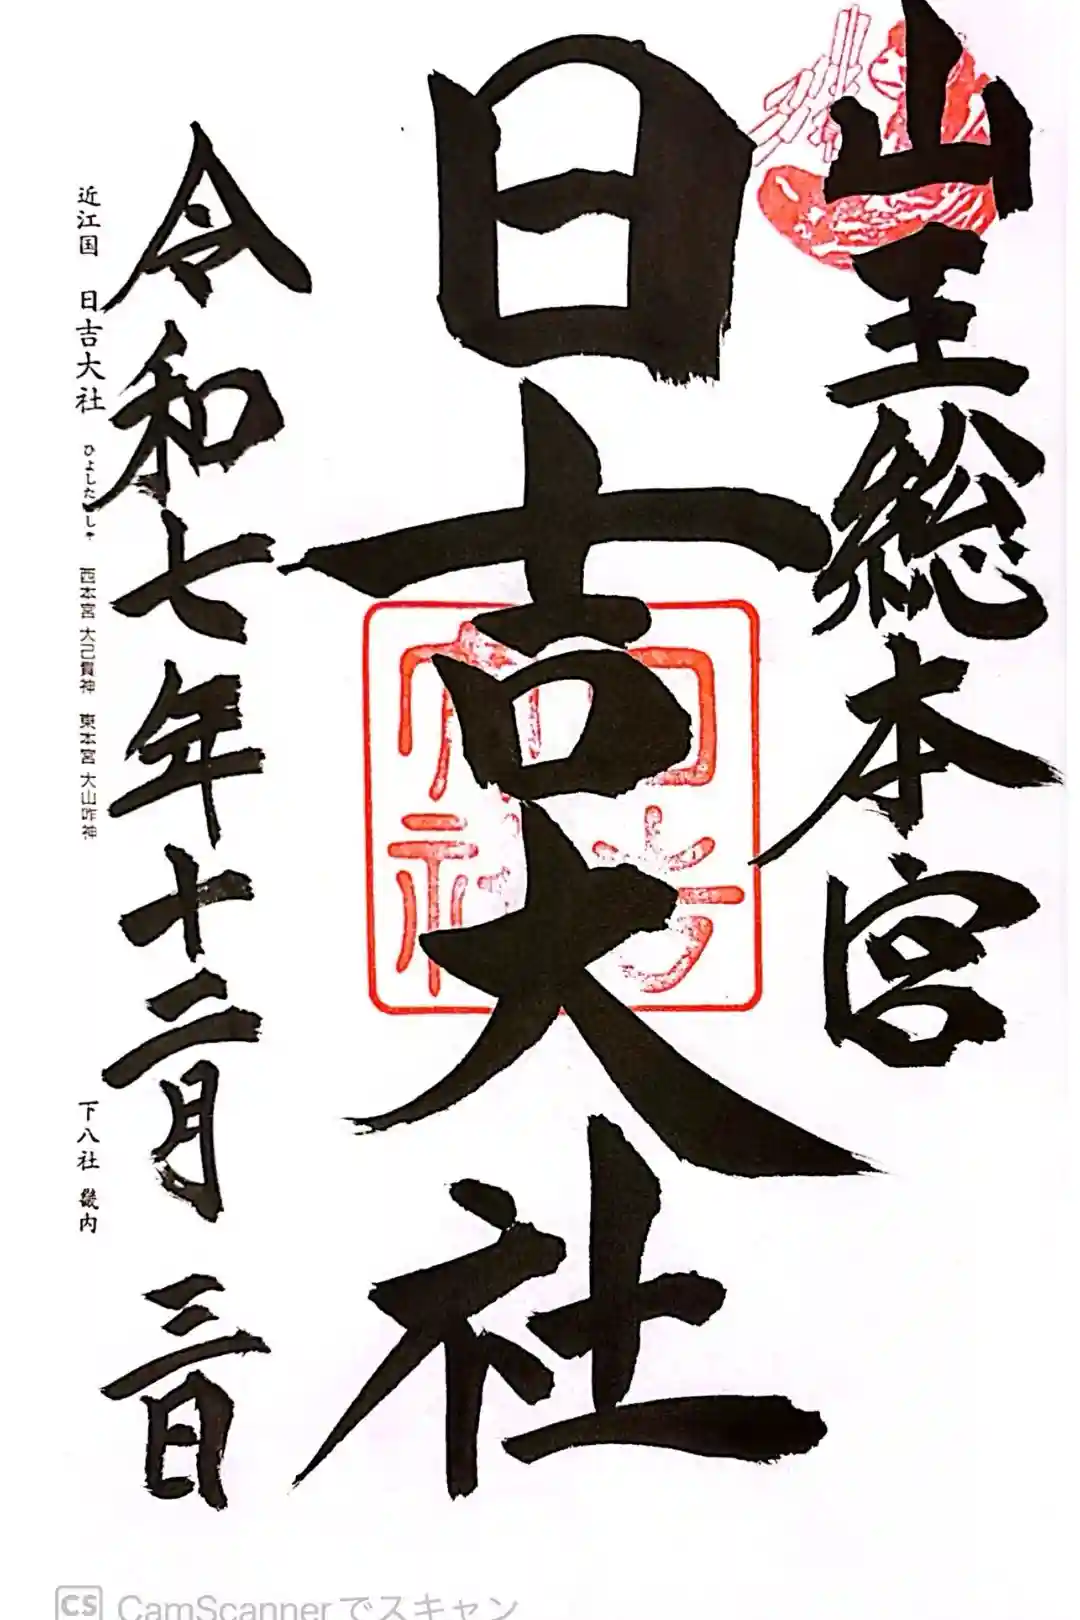 山王総本宮
日吉大社
大社
日吉
令和七年十二月三日
近江国 日吉大社 ひよしたいしゃ 西本宮 大己貴神 東本宮 大山咋神
下八社 畿内
CS CamScannerでスキャン